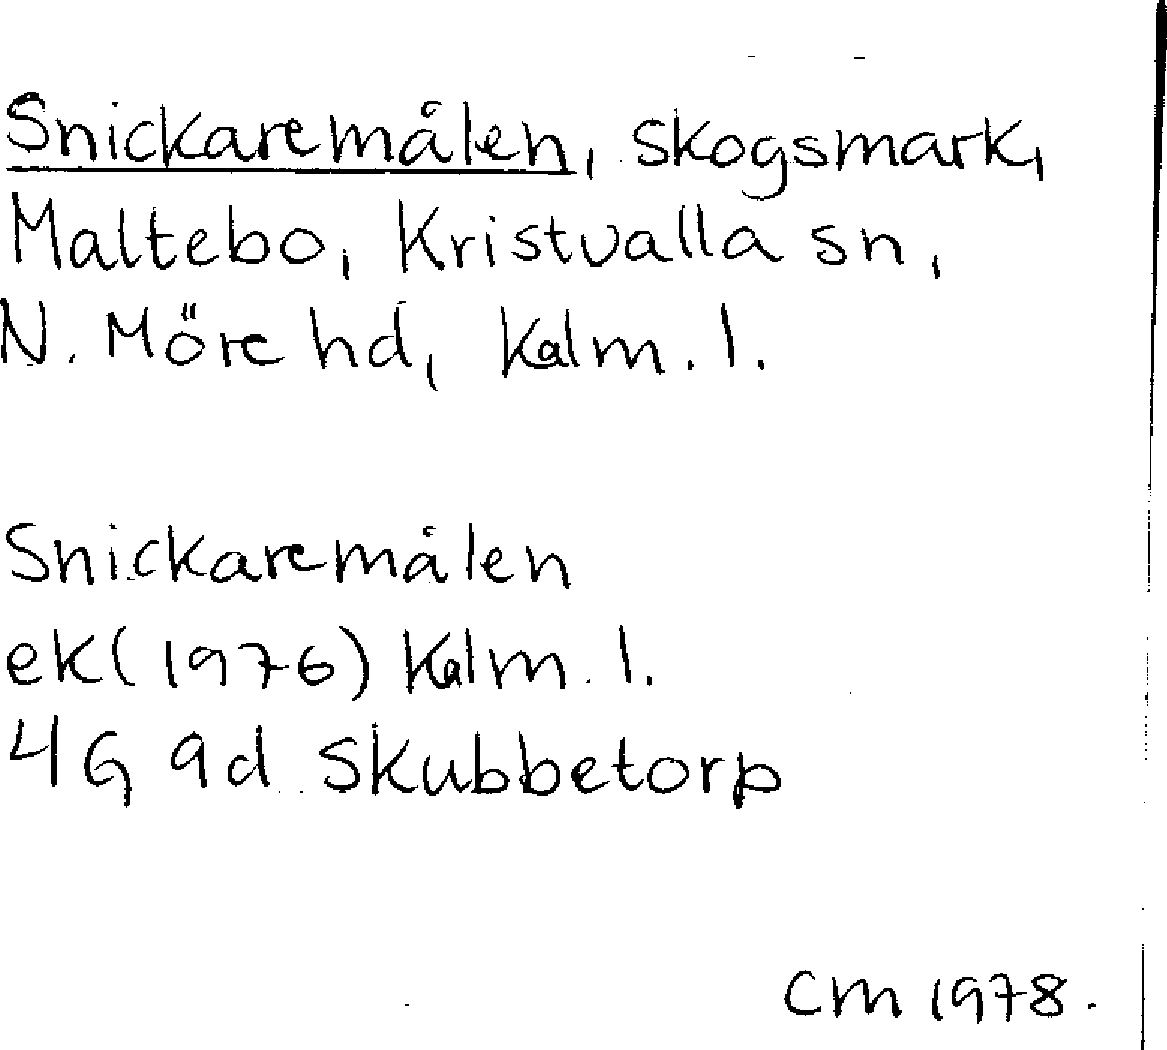 Snickaremålen, skogsmark,
Maltebo, Kristvalla sn,
N. Möre hd, Kalm. l.
Snickaremålen
ek (1976) Kalm. l.
4G 9d Skubbetorp
CM 1978.